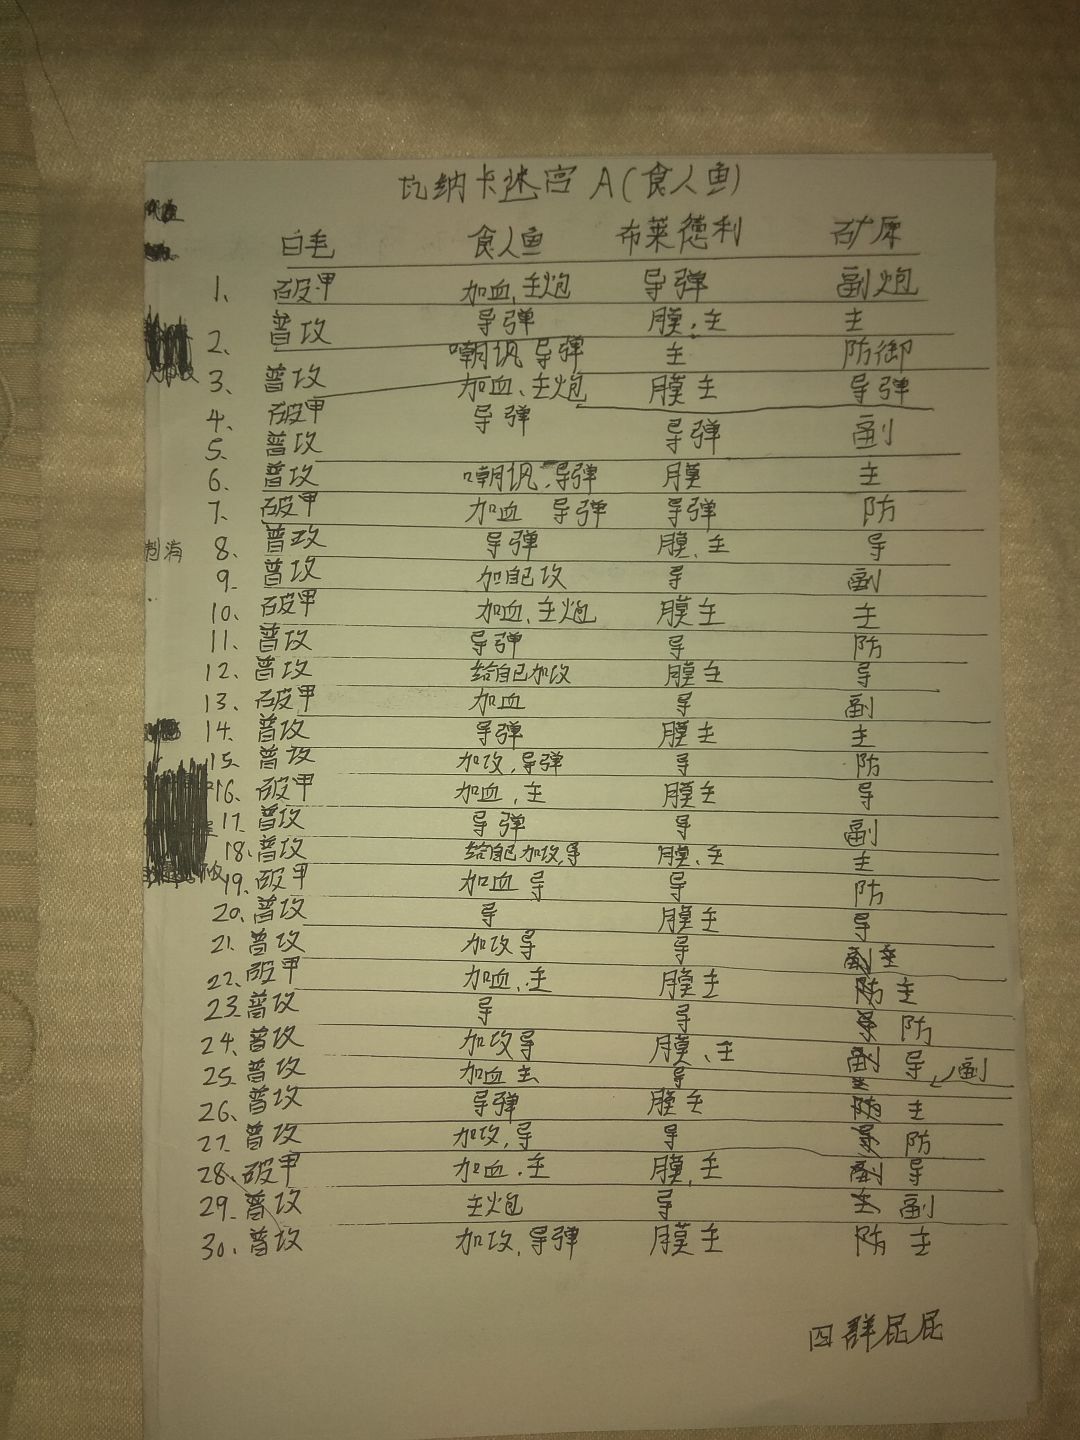 瓦纳卡迷宫 A(食人鱼)
白毛 食人鱼 布莱德利 矿原
1、 破甲 加血、主炮 导弹 副炮
2、 普攻 导弹 膜、主 主
3、 普攻 嘲讽 导弹 主 防御
4、 破甲 加血、主炮 膜主 导弹
5、 普攻 导弹 导弹 副
6、 普攻 嘲讽、导弹 膜 主
7、 破甲 加血 导弹 导弹 防
8、 普攻 导弹 膜、主 导
9、 普攻 加自己攻 导 副
10、 破甲 加血、主炮 膜主 主
11、 普攻 导弹 导 防
12、 普攻 给自己加攻 膜主 导
13、 破甲 加血 导 副
14、 普攻 导弹 膜主 主
15、 普攻 加攻、导弹 导 防
16、 破甲 加血、主 膜主 导
17、 普攻 导弹 导 副
18、 普攻 给自己加攻、导 膜、主 主
19、 破甲 加血 导 导 防
20、 普攻 导 膜主 导
21、 普攻 加攻导 导 主
22、 破甲 加血、主 膜主 主
23、 普攻 导 导 防
24、 普攻 加攻导 膜、主 导、副
25、 普攻 加血主 导
26、 普攻 导弹 膜主 主
27、 普攻 加攻、导 导 防
28、 破甲 加血、主 膜、主 导
29、 普攻 主炮 导 副
30、 普攻 加攻、导弹 膜主 防 主
四群屁屁